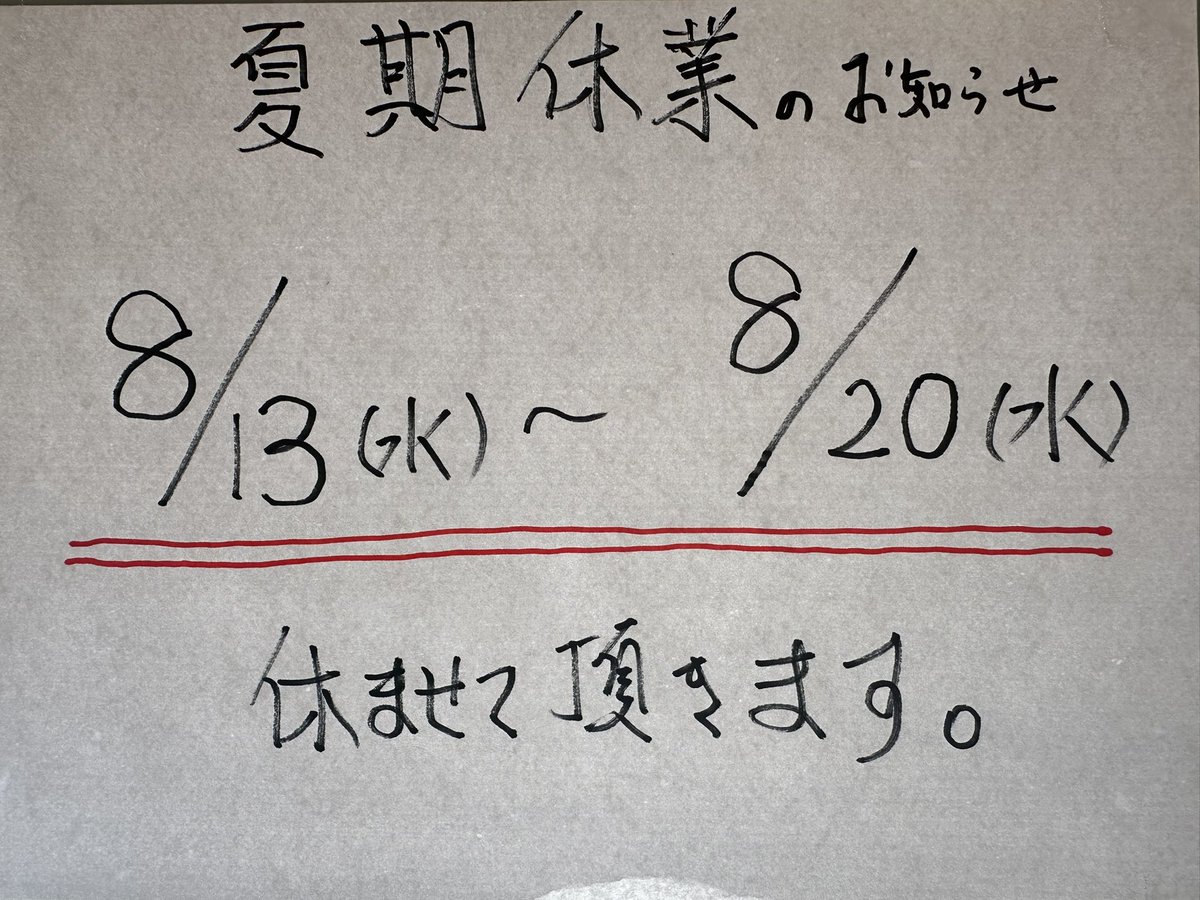 夏期休業のお知らせ
8/13(水)～8/20(水)
休ませて頂きます。